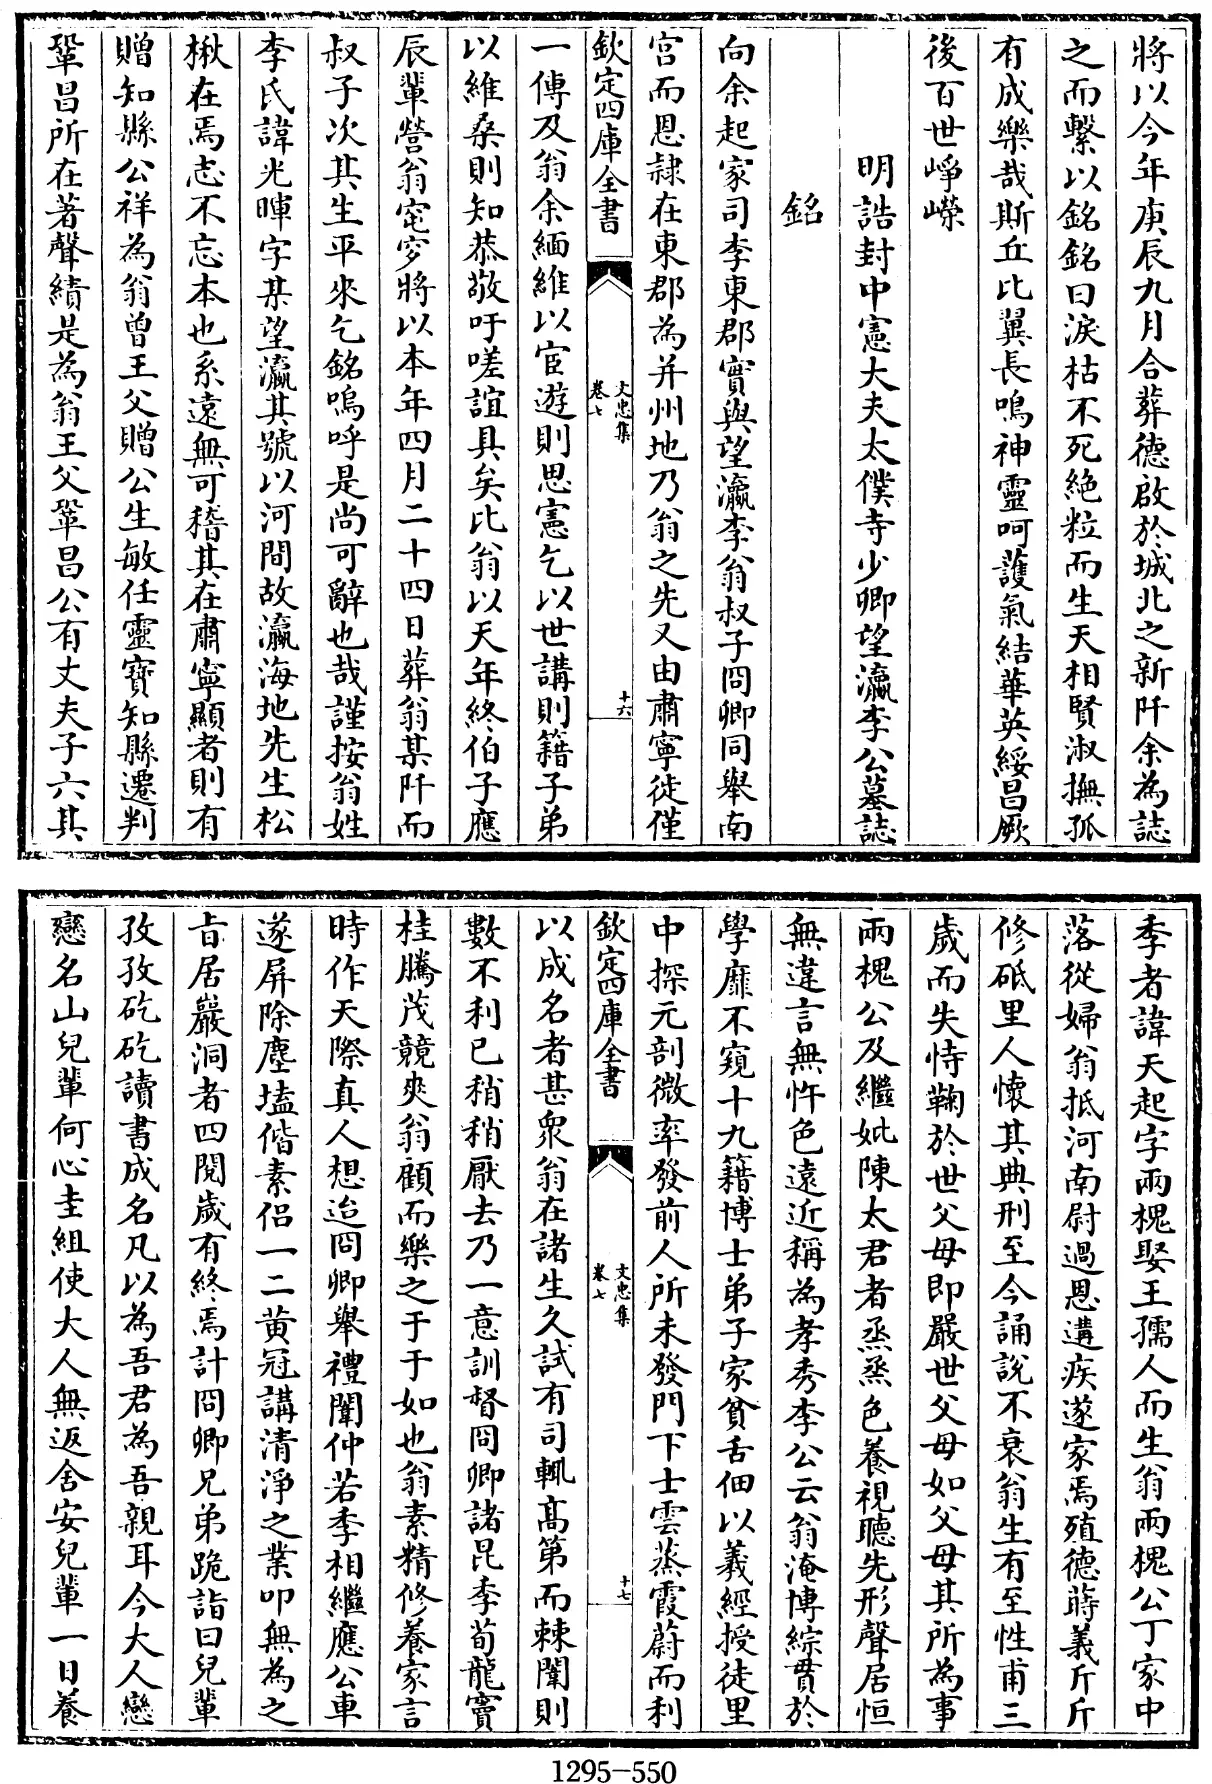 將以今年庚辰九月合葬德啟於城北之新阡余為誌
之而繫以銘銘曰淚枯不死絶粒而生天相賢淑撫孤
有成樂哉斯丘比翼長鳴神靈呵護氣結華英綏昌厥
後百世崢嶸
明誥封中憲大夫太僕寺少卿望瀛李公墓誌
銘
向余起家司李東郡實與望瀛李翁叔子冏卿同舉南
宫而恩隷在東郡為并州地乃翁之先又由肅寧徙僅
欽定四庫全書
文忠集
卷七
十六
一傳及翁余緬維以宦遊則思憲乞以世講則籍子弟
以維桑則知恭敬吁嗟誼具矣比翁以天年終伯子應
辰輩營翁窀穸將以本年四月二十四日葬翁某阡而
叔子次其生平來乞銘嗚呼是尚可辭也哉謹按翁姓
李氏諱光暉字某望瀛其號以河間故瀛海地先生松
楸在焉志不忘本也系遠無可稽其在肅寧顯者則有
贈知縣公祥為翁曾王父贈公生敏任靈寶知縣遷判
鞏昌所在著聲績是為翁王父鞏昌公有丈夫子六其
季者諱天起字兩槐娶王孺人而生翁兩槐公丁家中
落從婦翁抵河南尉過恩遘疾遂家焉殖德蒔義斤斤
修砥里人懷其典刑至今誦說不衰翁生有至性甫三
歲而失恃鞠於世父母即嚴世父母如父母其所為事
兩槐公及繼妣陳太君者烝烝色養視聽先形聲居恒
無違言無忤色遠近稱為孝秀李公云翁淹博綜貫於
學靡不窺十九籍博士弟子家貧舌佃以義經授徒里
中探元剖微率發前人所未發門下士雲蒸霞蔚而利
欽定四庫全書
文忠集
卷七
十七
以成名者甚衆翁在諸生久試有司輒髙第而棘闈則
數不利已稍稍厭去乃一意訓督冏卿諸昆季荀龍竇
桂騰茂競爽翁顧而樂之于于如也翁素精修養家言
時作天際真人想迨冏卿舉禮闈仲若季相繼應公車
遂屏除塵壒偕素侣一二黄冠講清淨之業叩無為之
㫖居巖洞者四閱歲有終焉計冏卿兄弟跪詣曰兒輩
孜孜矻矻讀書成名凡以為吾君為吾親耳今大人戀
戀名山兒輩何心圭組使大人無返舍安兒輩一日養
1295-550